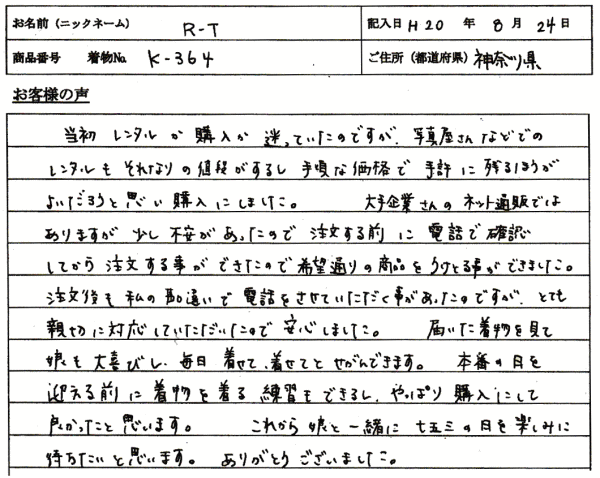 お名前（ニックネーム） R-T 記入日 H20 年 8月 24日
商品番号 着物No. K-364 ご住所（都道府県） 神奈川県
お客様の声
当初 レンタルか購入か迷っていたのですが、写真屋さんなどでの
レンタルもそれなりの値段がするし手頃な価格で手許に残るほうが
よいだろうと思い購入にしました。 大手企業さんのネット通販では
ありますが少し不安があったので注文する前に電話で確認
してから注文する事ができたので希望通りの商品をうけとる事ができました。
注文後も私の勘違いで電話をさせていただく事があったのですが、とても
親切に対応していただいたので安心しました。 届いた着物を見て
娘も大喜びし、毎日着せて、着せてとせがんできます。 本番の日を
迎える前に着物を着る練習もできるし、やっぱり購入にして
良かったと思います。 これから娘と一緒に七五三の日を楽しみに
待ちたいと思います。 ありがとうございました。